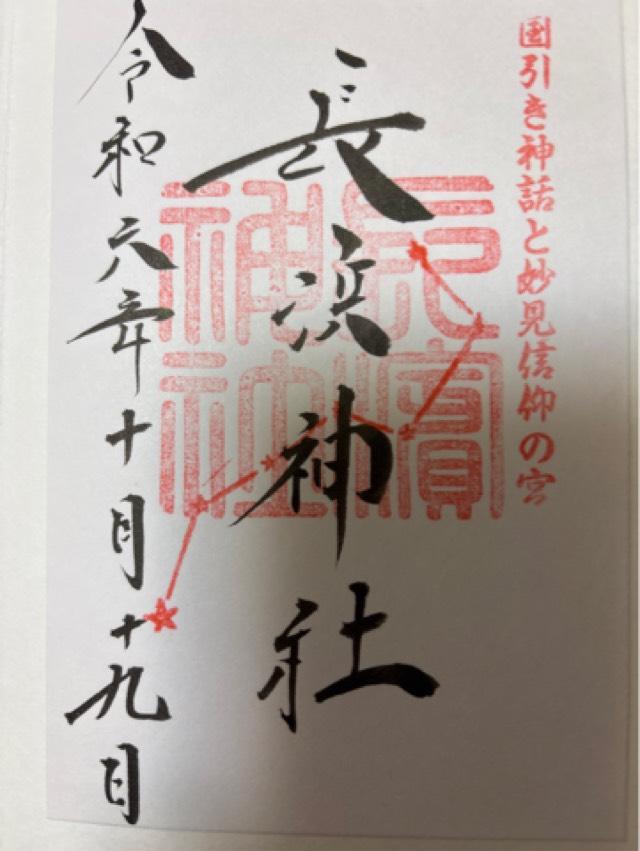 国引き神話と妙見信仰の宮
長浜神社
長濱
神社
令和六年十月十九日